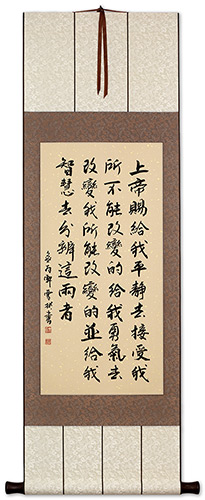 上帝賜給我平靜去接受我
所不能改變的給我勇氣去
改變我所能改變的並給我
智慧去分辨這兩者